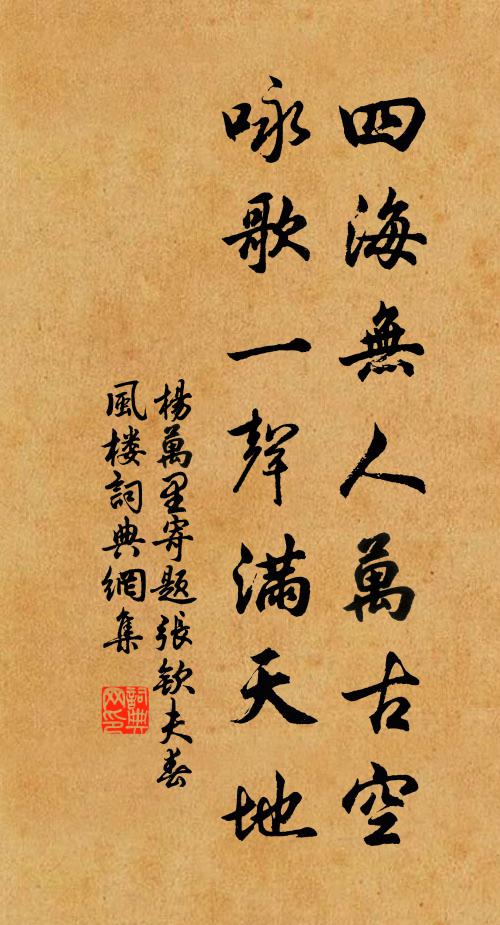 四海無人萬古空
咏歌一聲滿天地
楊萬里寄題張欽夫春
風楼詞典網集
詞典網印